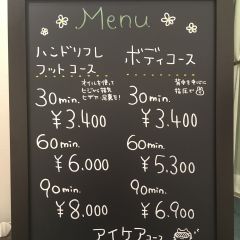 Menu
ハンドリフレ
フットコース
30min.
オイルを使って
ヒジから指先
ヒザ下 足裏を!
¥3.400
60min.
¥6.000
90min.
¥8.000
ボディコース
30min.
背中を中心に
指圧が
¥3.400
60min.
¥5.300
90min.
¥6.900
アイケアコース